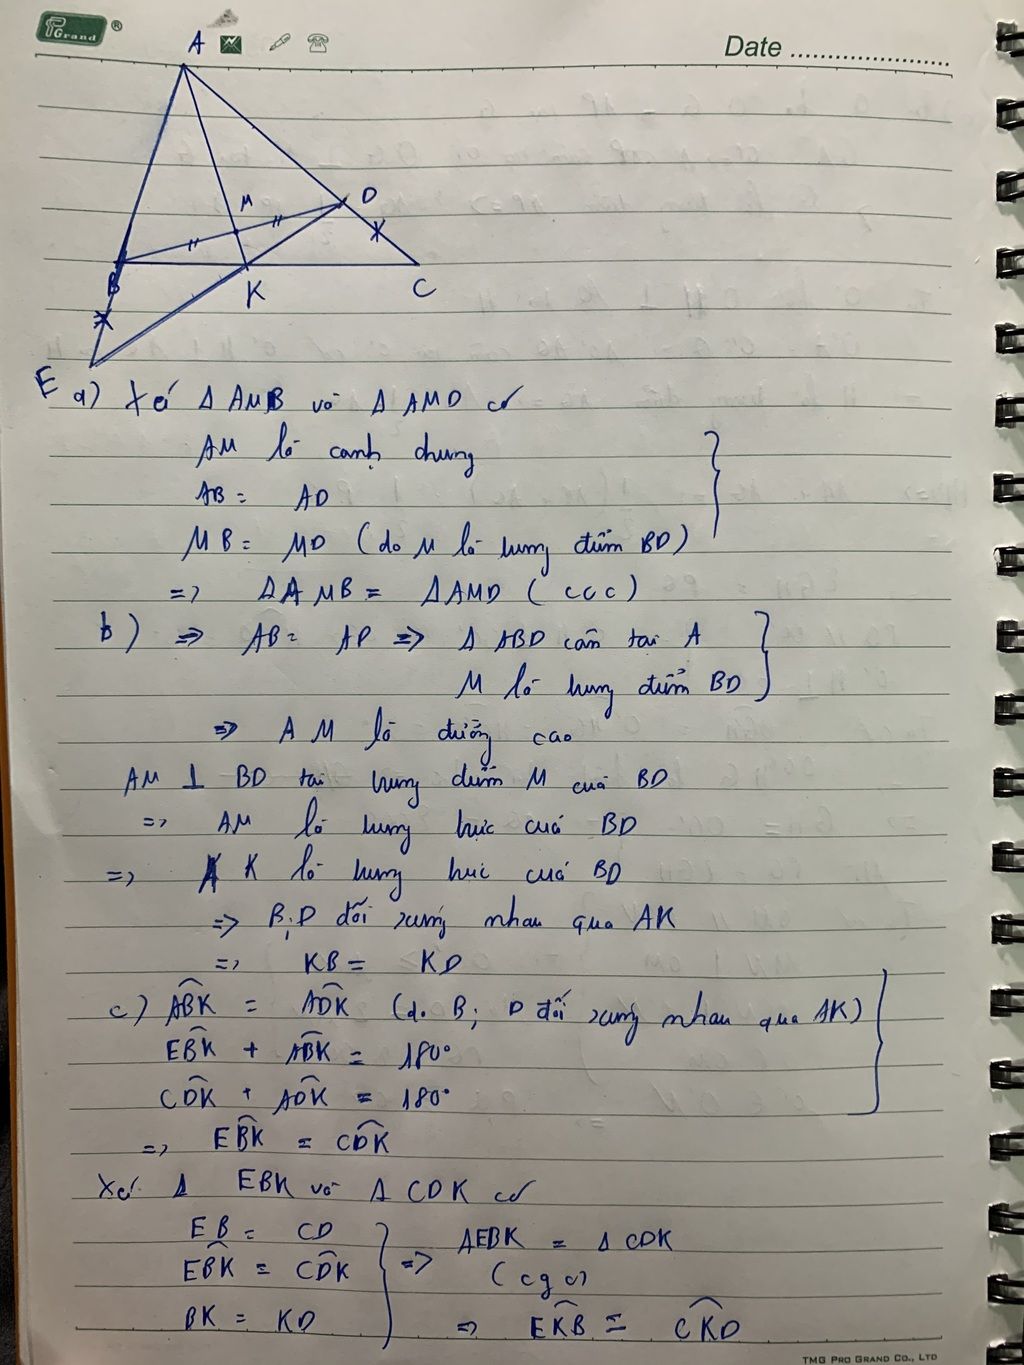 Grand ®
Date
A
M
D
B
K
C
E
a) Xét Δ AMB và Δ AMD có
AM là cạnh chung
AB = AD
MB = MD (do M là trung điểm BD)
=> ΔAMB = ΔAMD (ccc)
b) => AB = AD => Δ ABD cân tại A
M là trung điểm BD
=> AM là đường cao
AM ⊥ BD tại trung điểm M của BD
=> AM là trung trực của BD
=> AK là trung trực của BD
=> B; D đối xứng nhau qua AK
=> KB = KD
c) \widehat{ABK} = \widehat{ADK} (do B; D đối xứng nhau qua AK)
\widehat{EBK} + \widehat{ABK} = 180°
\widehat{CDK} + \widehat{ADK} = 180°
=> \widehat{EBK} = \widehat{CDK}
Xét Δ EBK và Δ CDK có
EB = CD
\widehat{EBK} = \widehat{CDK}
BK = KD
=> ΔEBK = Δ CDK
(cgc)
=> \widehat{EKB} = \widehat{CKD}
TMG PRO GRAND CO., LTD